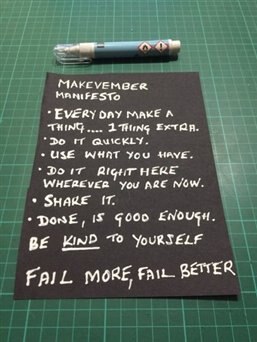 MAKEVEMBER
MANIFESTO
• EVERY DAY MAKE A
THING.... 1 THING EXTRA.
• DO IT QUICKLY.
• USE WHAT YOU HAVE.
• DO IT RIGHT HERE
WHEREVER YOU ARE NOW.
• SHARE IT.
• DONE, IS GOOD ENOUGH.
BE KIND TO YOURSELF
FAIL MORE, FAIL BETTER